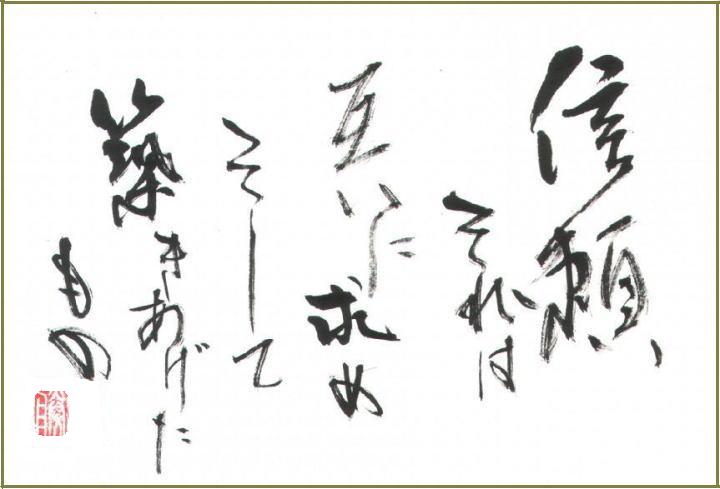 信頼、
それは
互いに求め
そして
築きあげた
もの